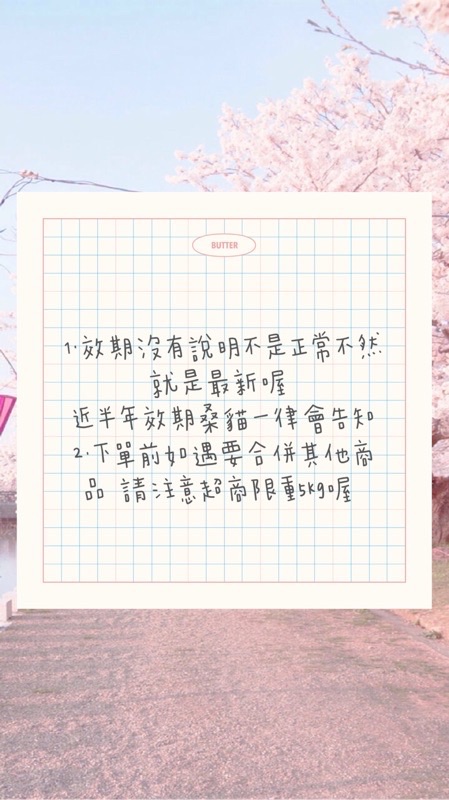 BUTTER
1.效期沒有說明不是正常不然
就是最新喔
近半年效期桑貓一律會告知
2.下單前如遇要合併其他商
品 請注意超商限重5kg喔